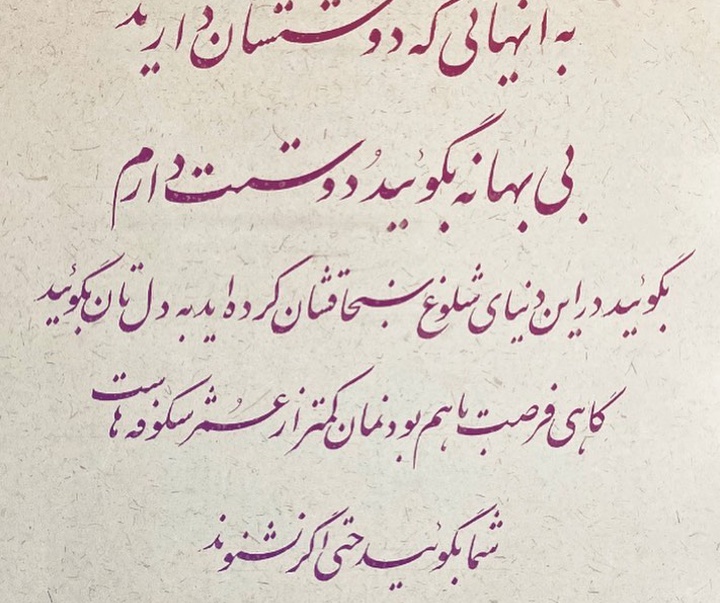 به آنهایی که دوستشان دارید
بی بهانه بگوئید دوستت دارم
بگوئید در این دنیای شلوغ سنجاقشان کرده اید به دل تان بگوئید
گاهی فرصت با هم بودنمان کمتر از عمر شکوفه هاست
شما بگوئید حتی اگر نشنوند